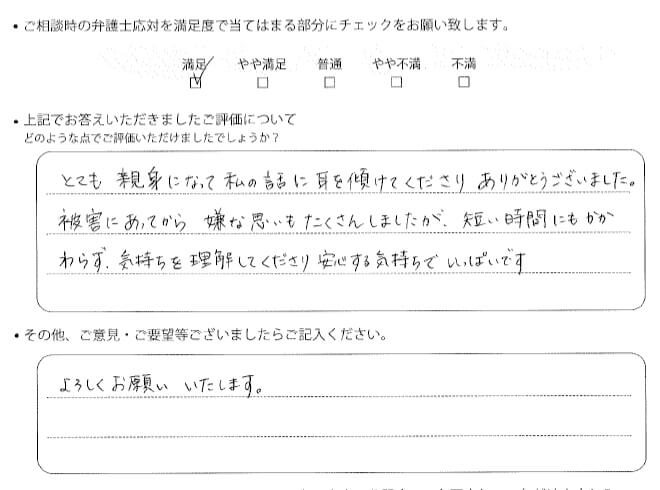 ・ご相談時の弁護士応対を満足度で当てはまる部分にチェックをお願い致します。
満足 やや満足 普通 やや不満 不満
☑ □ □ □ □
・上記でお答えいただきましたご評価について
どのような点でご評価いただけましたでしょうか？
とても 親身になって私の話に耳を傾けてくださり ありがとうございました。
被害にあってから 嫌な思いもたくさんしましたが、短い時間にもかか
わらず、気持ちを理解してくださり安心する気持ちでいっぱいです
・その他、ご意見・ご要望等ございましたらご記入ください。
よろしくお願い いたします。